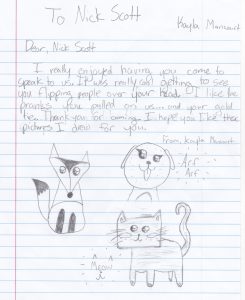 To Nick Scott
Kayla
Dear, Nick Scott
I really enjoyed having you come to
speak to us. It was really cool getting to see
you flipping people over your head. I like the
pranks you pulled on us... and your gold
tie. Thank you for coming. I hope you like these
pictures I drew for you.
From, Kayla
Arf
Arf
Meow